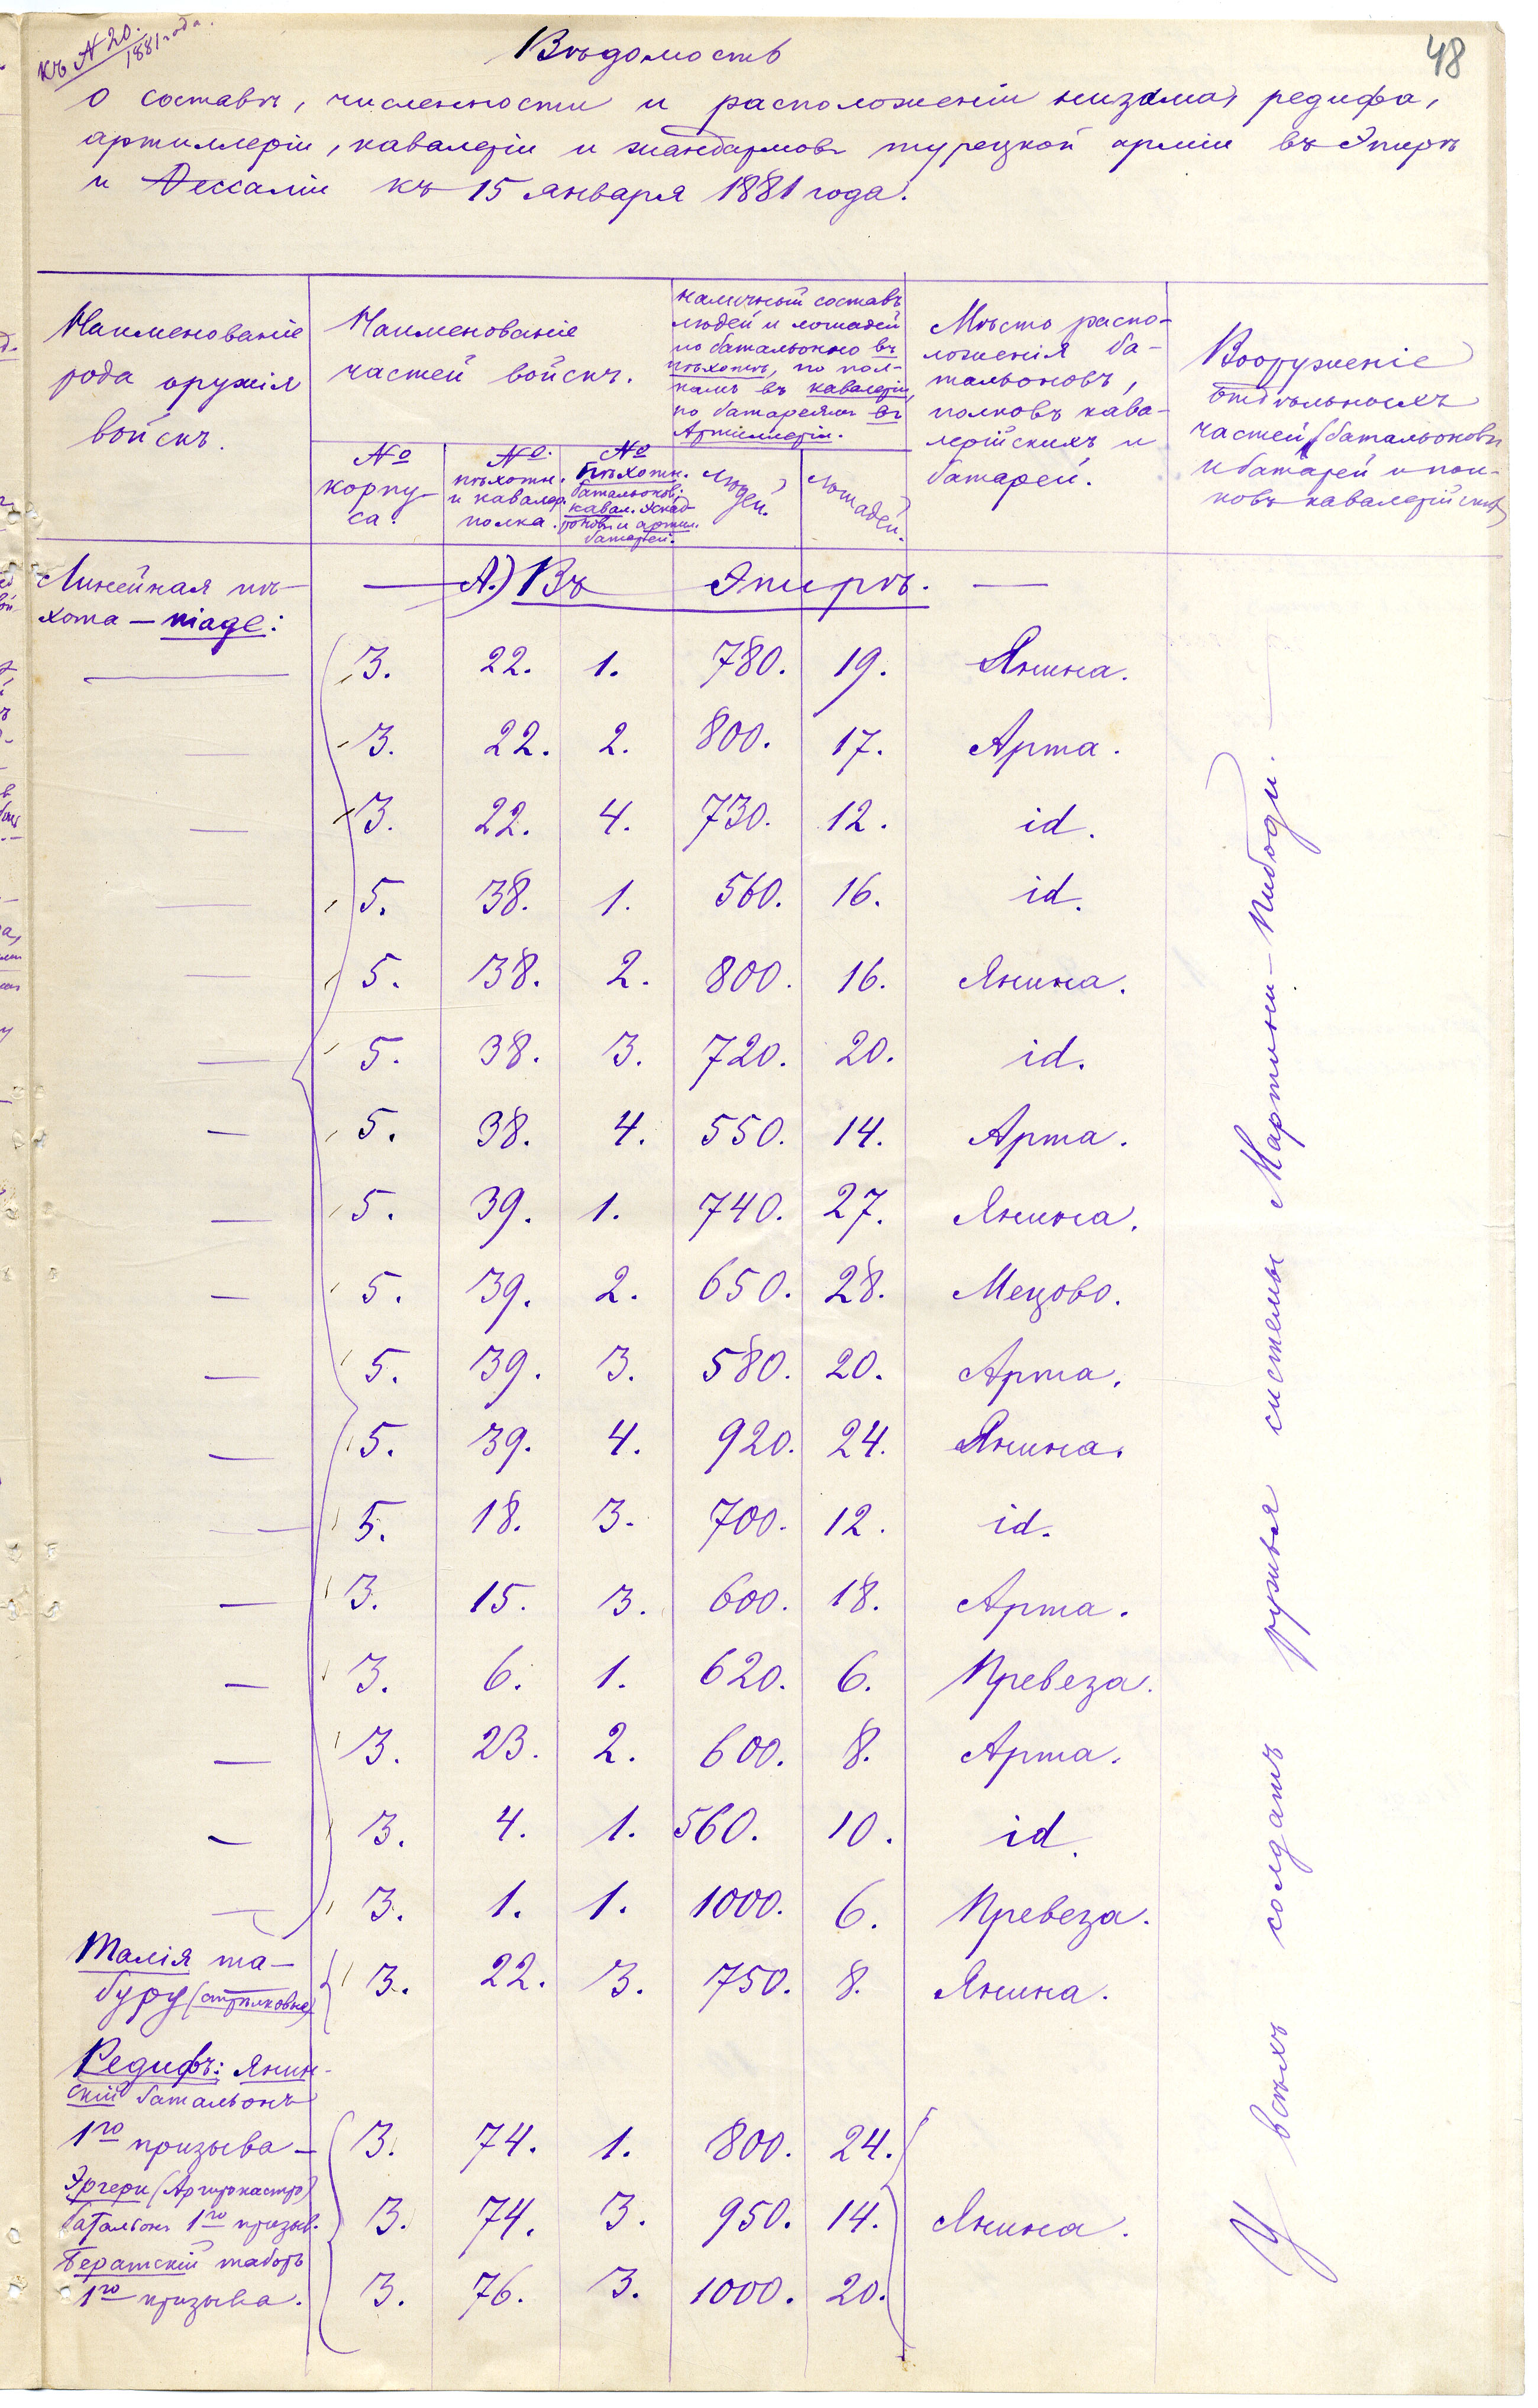 къ № 20.
1881 года.
48
Вѣдомость
о составѣ, численности и расположеніи низама, редифа,
артиллеріи, кавалеріи и жандармовъ турецкой арміи въ Эпирѣ
и Ѳессаліи къ 15 января 1881 года.
Наименованіе
рода оружія
войскъ.
Наименованіе
частей войскъ.
№
корпу-
са.
№
пѣхотн.
и кавалер.
полка.
№
Пѣхотн.
батальонов;
кавал. эскад-
роновъ и артил.
батарей.
Наличный составъ
людей и лошадей
по батальонно въ
пѣхотѣ, по пол-
камъ въ кавалеріи,
по батареямъ въ
Артиллеріи.
людей.
лошадей.
Мѣсто распо-
ложенія ба-
тальоновъ,
полковъ кава-
лерійскихъ и
батарей.
Вооруженіе
отдѣльныхъ
частей (батальоновъ
и батарей и пол-
ковъ кавалерійских)
Линейная пѣ-
хота — niage:
— А.) Въ Эпирѣ. —
— 3. 22. 1. 780. 19. Янина.
— 3. 22. 2. 800. 17. Арта.
— 3. 22. 4. 730. 12. id.
— 5. 38. 1. 560. 16. id.
— 5. 38. 2. 800. 16. Янина.
— 5. 38. 3. 720. 20. id.
— 5. 38. 4. 550. 14. Арта.
— 5. 39. 1. 740. 27. Янина.
— 5. 39. 2. 650. 28. Мецово.
— 5. 39. 3. 580. 20. Арта.
— 5. 39. 4. 920. 24. Янина.
— 5. 18. 3. 700. 12. id.
— 3. 15. 3. 600. 18. Арта.
— 3. 6. 1. 620. 6. Превеза.
— 3. 23. 2. 600. 8. Арта.
— 3. 4. 1. 560. 10. id.
— 3. 1. 1. 1000. 6. Превеза.
Талія та-
буру (стрѣлковые) 3. 22. 3. 750. 8. Янина.
Редифъ: Янин-
скій батальонъ
1го призыва — 3. 74. 1. 800. 24.
Эргери (Аргирокастро)
батальон 1го призыв. 3. 74. 3. 950. 14. Янина.
Бератскій таборъ
1го призыва. 3. 76. 3. 1000. 20.
У всѣхъ солдатъ ружья системы Мартини-Пибоди. —